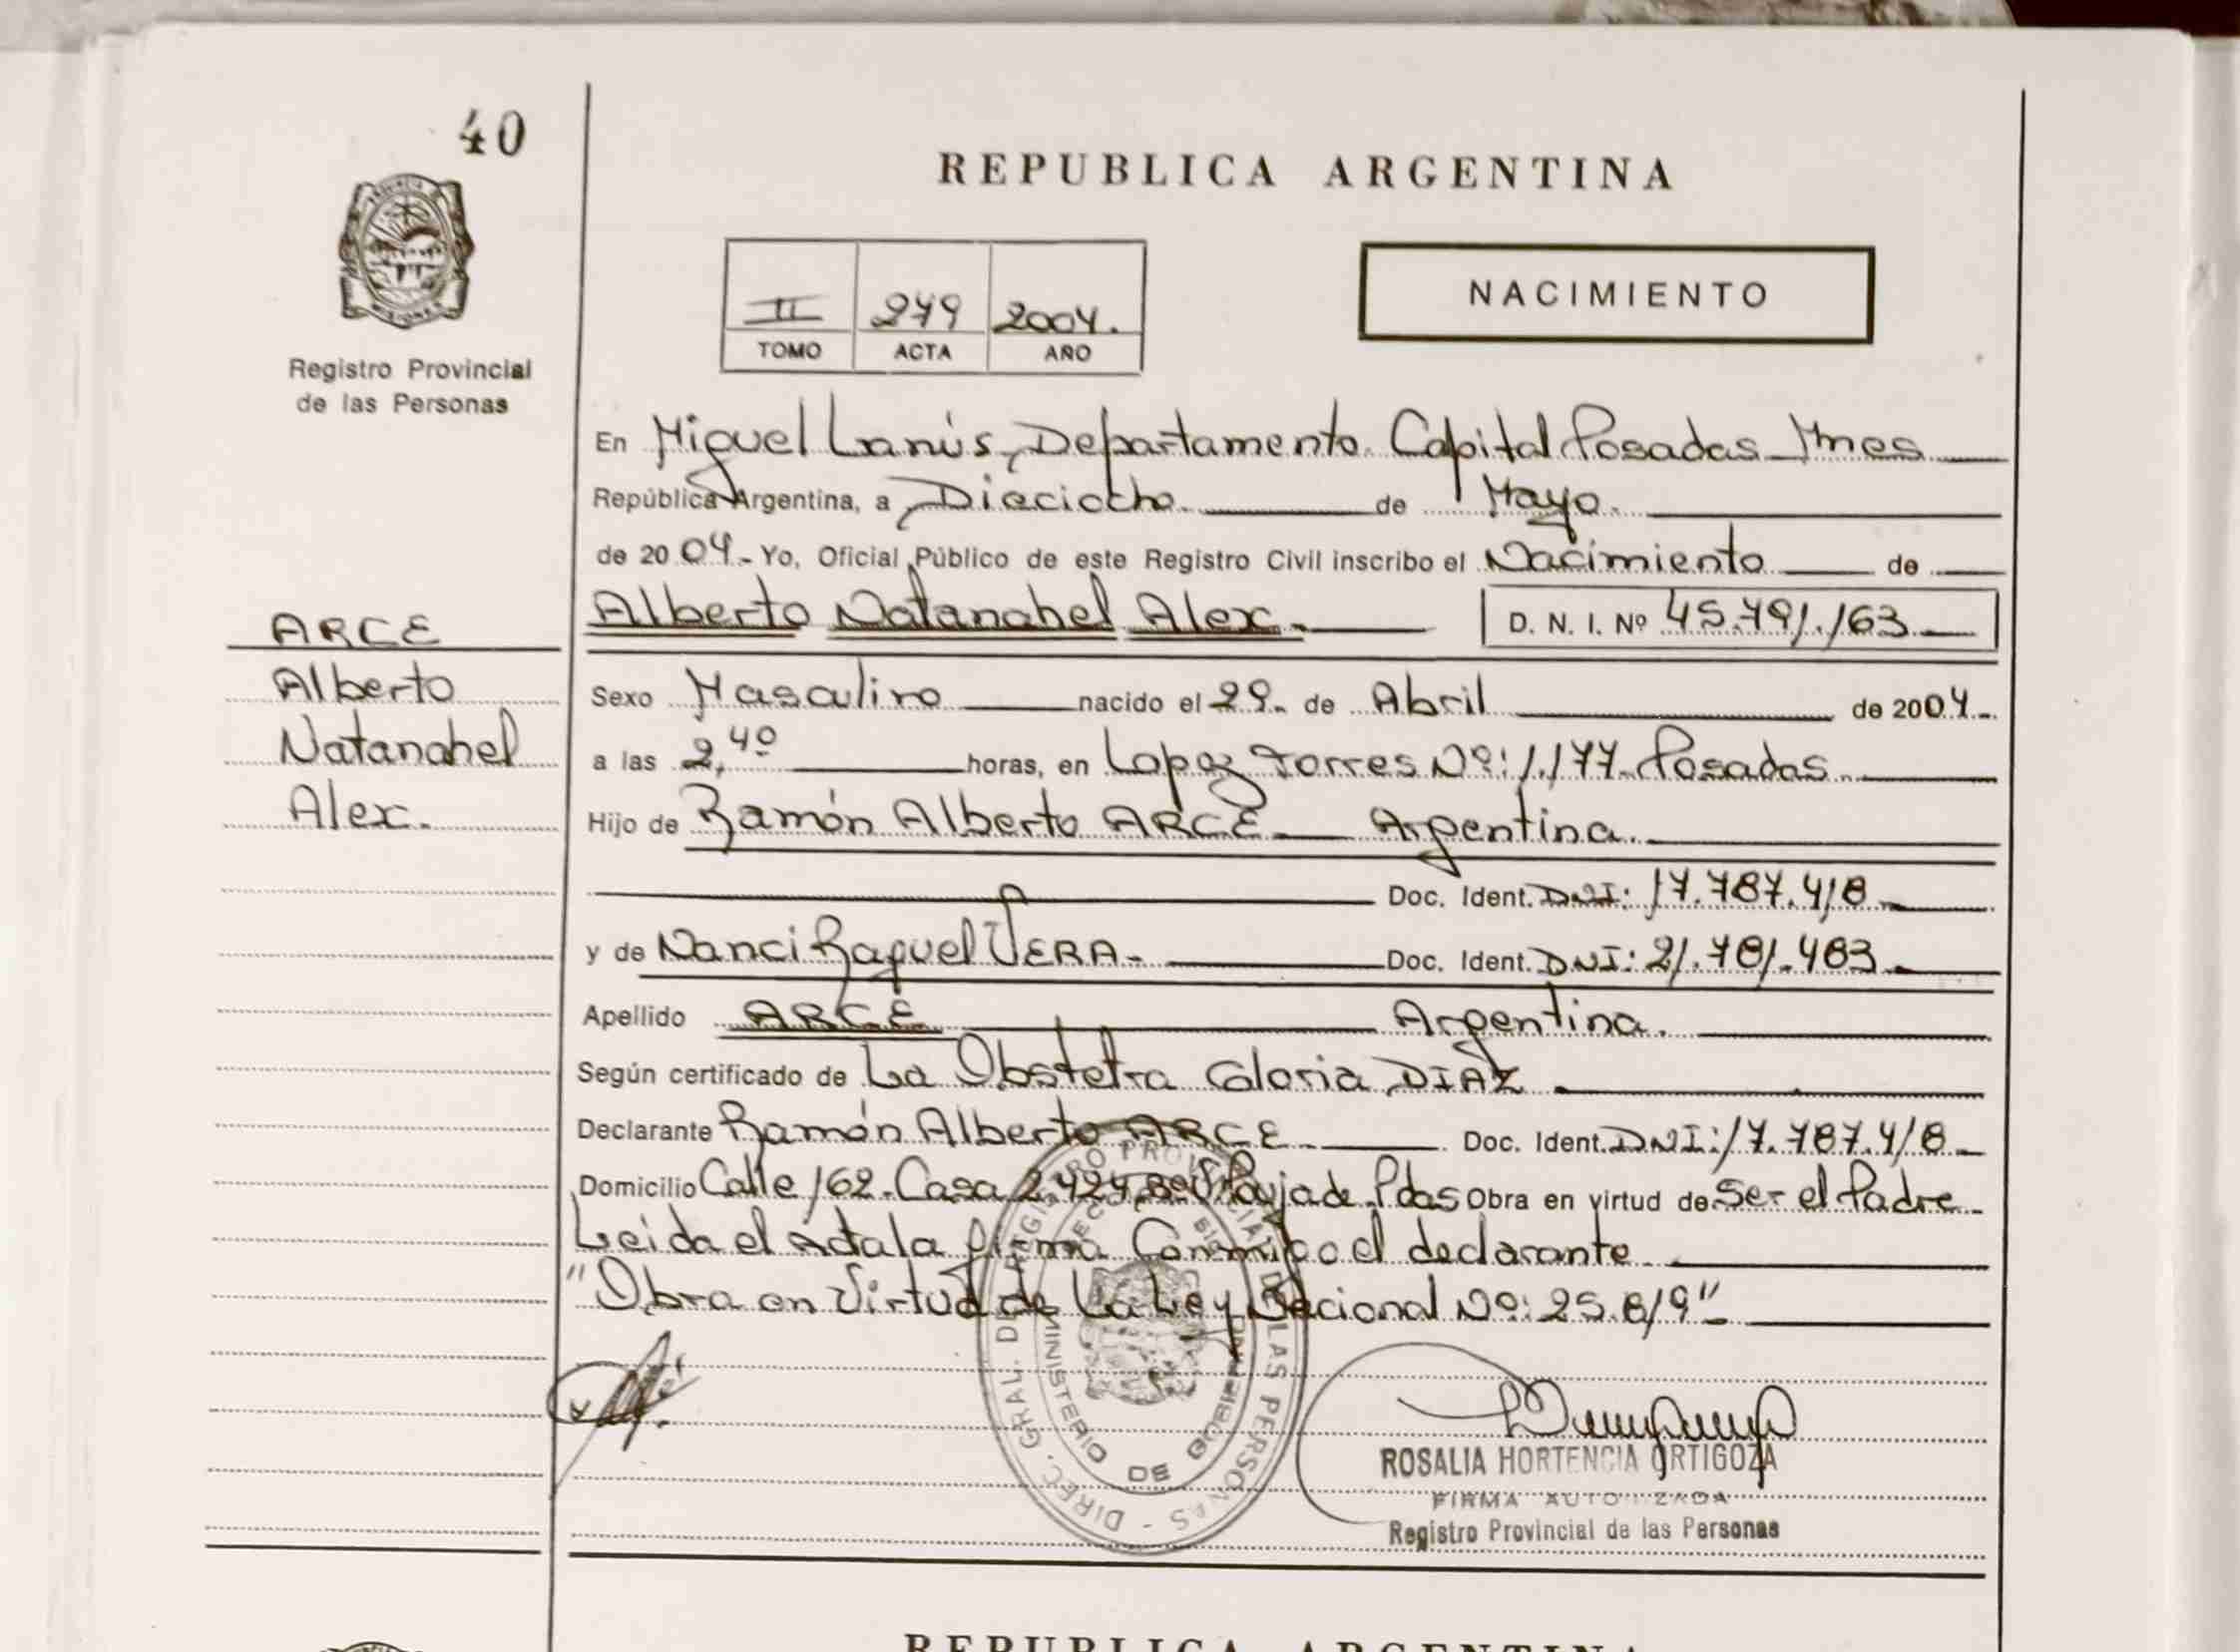 40
REPUBLICA ARGENTINA
NACIMIENTO
II 279 2004.
TOMO ACTA AÑO
Registro Provincial
de las Personas
En Miguel Lanús, Departamento Capital Posadas Mnes
República Argentina, a Dieciocho de Mayo.
de 2004.- Yo, Oficial Público de este Registro Civil inscribo el Nacimiento de
Alberto Natanahel Alex.- D. N. I. Nº 45.791.163
ARCE
Alberto
Natanahel
Alex.
Sexo Masculino nacido el 29. de Abril de 2004.-
a las 2,40 horas, en Lopez Torres Nº: 1.177 Posadas
Hijo de Ramón Alberto ARCE Argentina.
Doc. Ident. DNI: 17.787.418
y de Nanci Raquel VERA- Doc. Ident. DNI: 21.781.483
Apellido ARCE Argentina.
Según certificado de La Obstetra Gloria DIAZ
Declarante Ramón Alberto ARCE Doc. Ident. DNI: 17.787.418
Domicilio Calle 162. Casa Pdas Obra en virtud de Ser el Padre
Leida el Acta la firma Conmigo el declarante
"Obra en Virtud de La Ley Nacional Nº: 25.819"
DIREC. GRAL. DEL REGISTRO PROVINCIAL DE LAS PERSONAS
MINISTERIO DE GOBIERNO
ROSALIA HORTENCIA ORTIGOZA
FIRMA AUTORIZADA
Registro Provincial de las Personas
REPUBLICA ARGENTINA